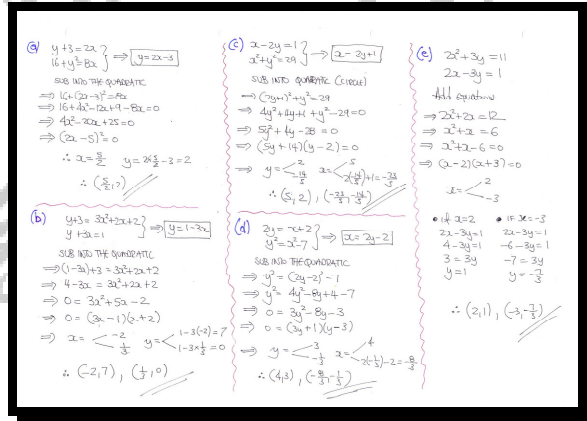 (a) y+3=2x
16+y²=8x } ⇒ y=2x-3
SUB INTO THE QUADRATIC
⇒ 16+(2x-3)²=8x
⇒ 16+4x²-12x+9-8x=0
⇒ 4x²-20x+25=0
⇒ (2x-5)²=0
∴ x=5/2 y=2×5/2-3=2
∴ (5/2,2)
(b) y+3=3x²+2x+2
y+3x=1 } ⇒ y=1-3x
SUB INTO THE QUADRATIC
⇒ (1-3x)+3=3x²+2x+2
⇒ 4-3x=3x²+2x+2
⇒ 0=3x²+5x-2
⇒ 0=(3x-1)(x+2)
⇒ x= < -2 1/3 y= < 1-3(-2)=7 1-3×1/3=0
∴ (-2,7), (1/3,0)
(c) x-2y=1
x²+y²=29 } ⇒ x=2y+1
SUB INTO QUADRATIC (CIRCLE)
⇒ (2y+1)²+y²=29
⇒ 4y²+4y+1+y²-29=0
⇒ 5y²+4y-28=0
⇒ (5y+14)(y-2)=0
⇒ y= < 2 -14/5 x= < 5 2(-14/5)+1=-23/5
∴ (5,2), (-23/5,-14/5)
(d) 2y=x+2
y²=x²-7 } ⇒ x=2y-2
SUB INTO THE QUADRATIC
⇒ y²=(2y-2)²-7
⇒ y²=4y²-8y+4-7
⇒ 0=3y²-8y-3
⇒ 0=(3y+1)(y-3)
⇒ y= < 3 -1/3 x= < 4 2(-1/3)-2=-8/3
∴ (4,3), (-8/3,-1/3)
(e) 2x²+3y=11
2x-3y=1
Add equations
⇒ 2x²+2x=12
⇒ x²+x=6
⇒ x²+x-6=0
⇒ (x-2)(x+3)=0
x= < 2 -3
• if x=2 • IF x=-3
2x-3y=1 2x-3y=1
4-3y=1 -6-3y=1
3=3y -7=3y
y=1 y=-7/3
∴ (2,1), (-3,-7/3)